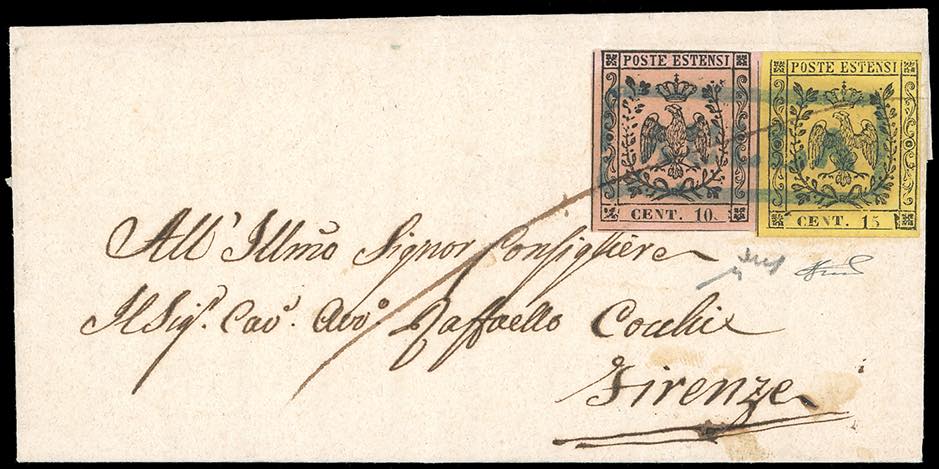 POSTE ESTENSI
CENT. 10.
POSTE ESTENSI
CENT. 15
All' Illmo Signor Consigliere
Il Sigr. Cavr. Avvo. Raffaello Cocchi
Firenze